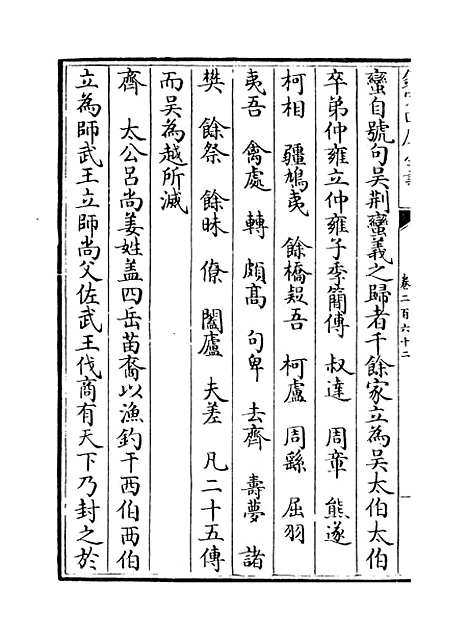 欽定四庫全書
卷二百六十二
蠻自號句吳荆蠻義之歸者千餘家立為吳太伯太伯
卒弟仲雍立仲雍子季簡傳 叔達 周章 熊遂
柯相 彊鳩夷 餘橋疑吾 柯盧 周繇 屈羽
夷吾 禽處 轉 頗高 句卑 去齊 壽夢 諸
樊 餘祭 餘昧 僚 闔廬 夫差 凡二十五傳
而吳為越所滅
齊 太公呂尚姜姓盖四岳苗裔以漁釣干西伯西伯
立為師武王立師尚父佐武王伐商有天下乃封之於